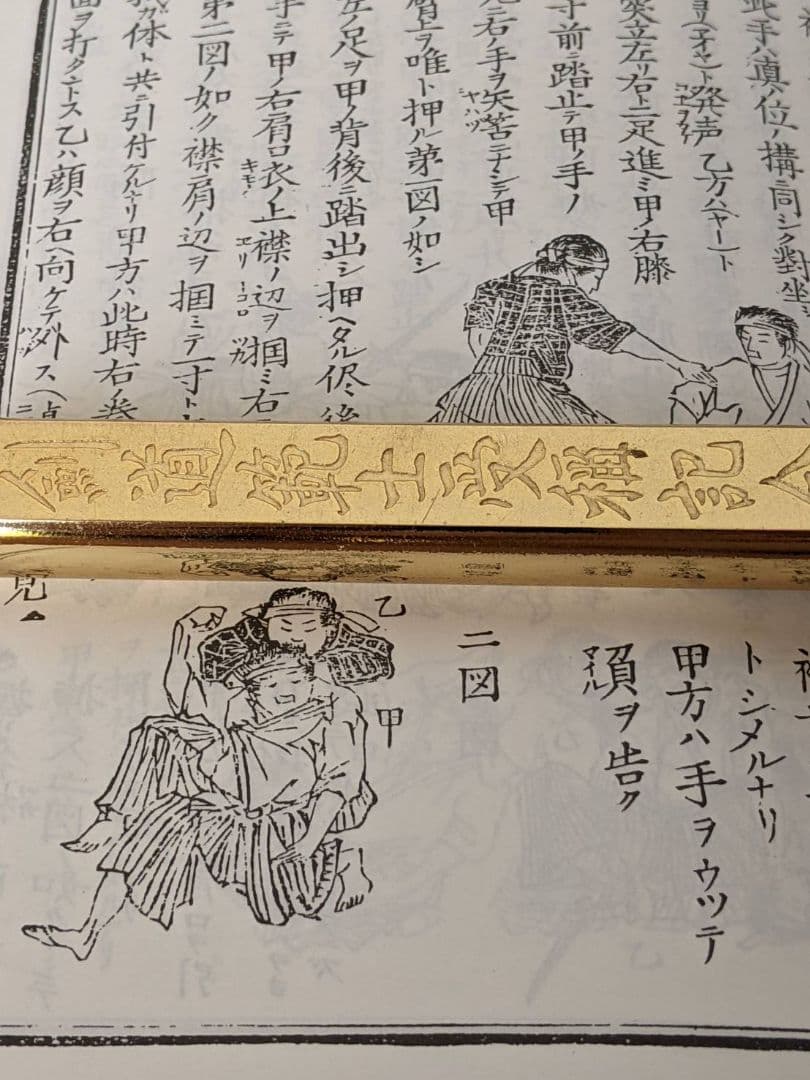 此手ハ真ノ位ノ構ニ同シク對坐シ
ヨリ(エイヤ)ト発声乙方ハ(ヤー)ト
突立左リ右ト二足進ミ甲ノ右膝
寸前ニ踏止テ甲ノ手ノ
右ノ手ヲ矢筈ニナシテ甲
肩上ヲ唯ト押ル第一図ノ如シ
左ノ足ヲ甲ノ背後ニ踏出シ押ヘタル侭後
手ニテ甲ノ右肩口衣ノ上襟ノ辺ヲ掴ミ右
第二図ノ如ク襟肩ノ辺ヲ掴ミテ一寸ト
体ト共ニ引付ケルナリ甲方ハ此時右ノ拳
面ヲ打タントス乙ハ顔ヲ右ヘ向ケテ外ス
剣道範士受稱記念
トシメルナリ
甲方ハ手ヲウツテ
須ヲ告ク
二図
乙
甲
見